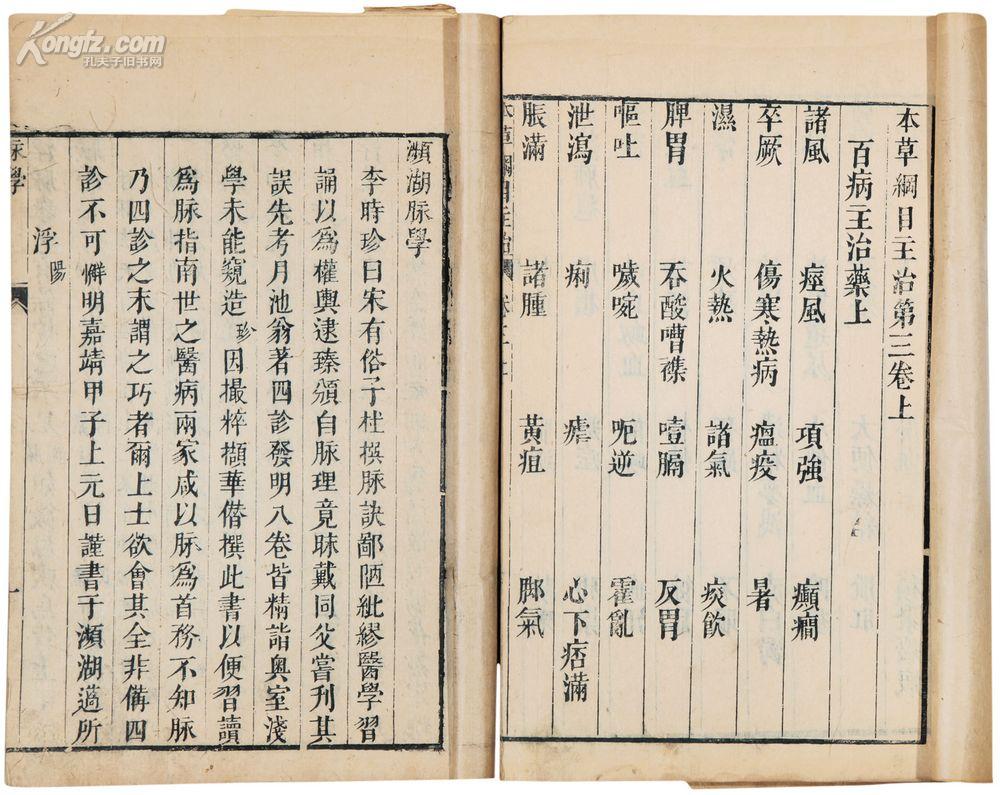 本草綱目主治第三卷上
百病主治藥上
諸風 痙風 項強 癲癎
卒厥 傷寒熱病 瘟疫 暑
濕 火熱 諸氣 痰飲
脾胃 吞酸嘈襍 噎膈 反胃
嘔吐 噦啘 呃逆 霍亂
泄瀉 痢 瘧 心下痞滿
脹滿 諸腫 黃疸 脚氣
本草綱目主治
瀕湖脉學
李時珍曰宋有俗子杜撰脉訣鄙陋紕繆醫學習
誦以爲權輿逮臻頒白脉理竟昧戴同父嘗刊其
誤先考月池翁著四診發明八卷皆精詣奧室淺
學未能窺造珍因撮粹擷華僭撰此書以便習讀
爲脉指南世之醫病兩家咸以脉爲首務不知脉
乃四診之末謂之巧者爾上士欲會其全非備四
診不可皆明嘉靖甲子上元日謹書于瀕湖薖所
浮陽
脉學 一
Kongfz.com
孔夫子旧书网